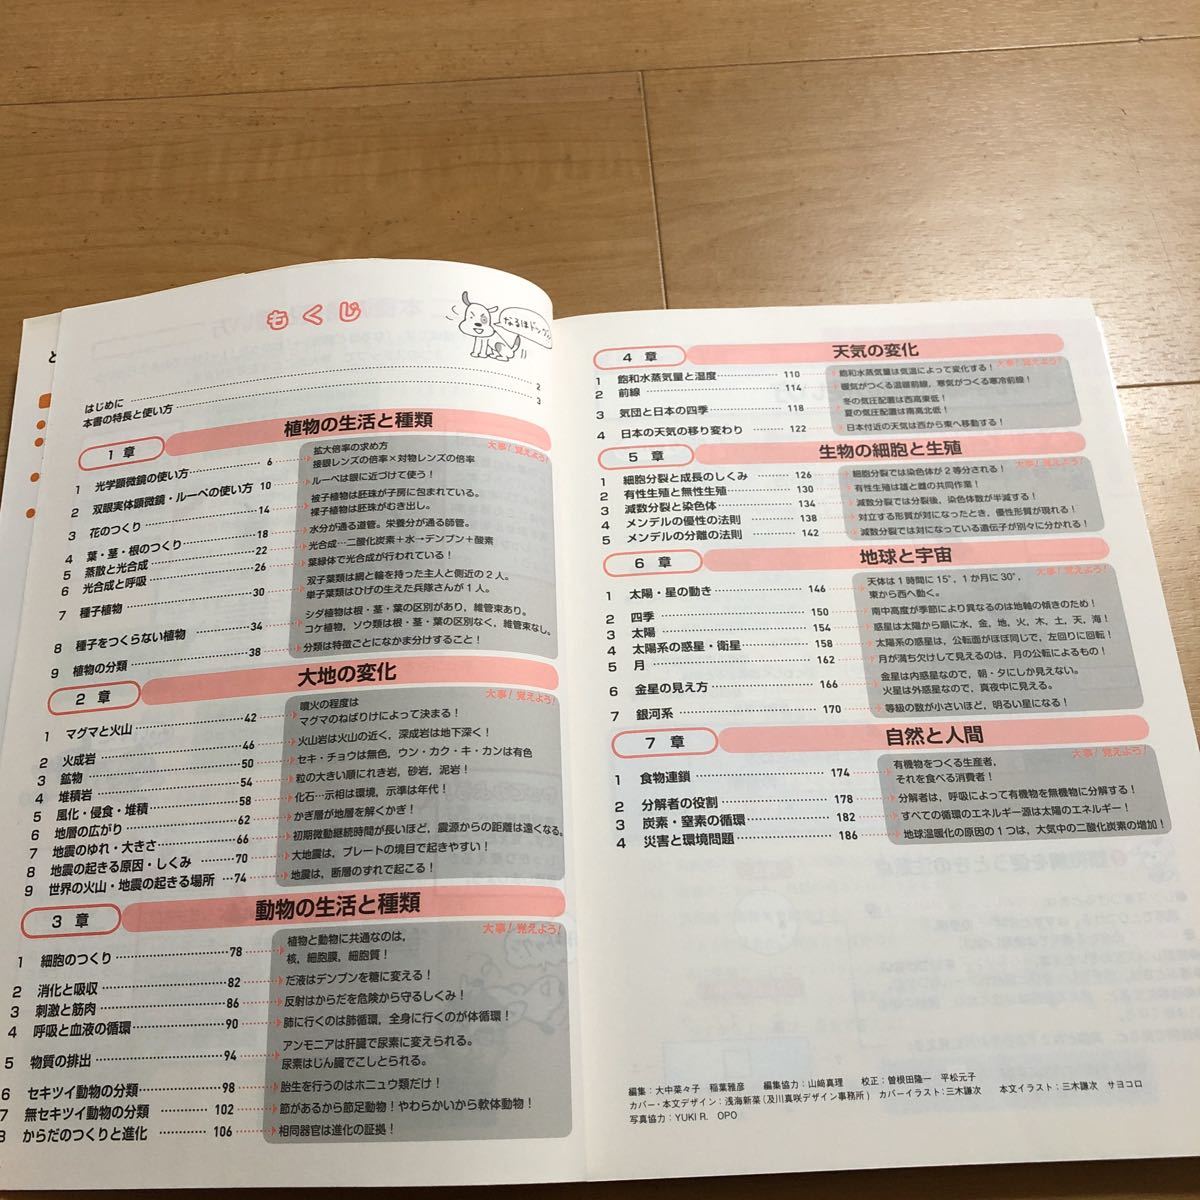 もくじ
なるほドッグ!!
はじめに 2
本書の特長と使い方 3
1章 植物の生活と種類
大事！覚えよう！
1 光学顕微鏡の使い方 6 拡大倍率の求め方
接眼レンズの倍率×対物レンズの倍率
2 双眼実体顕微鏡・ルーペの使い方 10 ルーペは眼に近づけて使う！
3 花のつくり 14 被子植物は胚珠が子房に包まれている。
裸子植物は胚珠がむき出し。
4 葉・茎・根のつくり 18 水分が通る道管。栄養分が通る師管。
5 蒸散と光合成 22 光合成…二酸化炭素＋水→デンプン＋酸素
6 光合成と呼吸 26 葉緑体で光合成が行われている！
7 種子植物 30 双子葉類は網と輪を持った主人と側近の2人。
単子葉類はひげの生えた兵隊さんが1人。
8 種子をつくらない植物 34 シダ植物は根・茎・葉の区別があり，維管束あり。
コケ植物，ソウ類は根・茎・葉の区別なく，維管束なし。
9 植物の分類 38 分類は特徴ごとになかま分けすること！
2章 大地の変化
大事！覚えよう！
1 マグマと火山 42 噴火の程度は
マグマのねばりけによって決まる！
2 火成岩 46 火山岩は火山の近く，深成岩は地下深く！
3 鉱物 50 セキ・チョウは無色，ウン・カク・キ・カンは有色
4 堆積岩 54 粒の大きい順にれき岩，砂岩，泥岩！
5 風化・侵食・堆積 58 化石…示相は環境，示準は年代！
6 地層の広がり 62 かぎ層が地層を解くかぎ！
7 地震のゆれ・大きさ 66 初期微動継続時間が長いほど，震源からの距離は遠くなる。
8 地震の起きる原因・しくみ 70 大地震は，プレートの境目で起きやすい！
9 世界の火山・地震の起きる場所 74 地震は，断層のずれで起こる！
3章 動物の生活と種類
大事！覚えよう！
1 細胞のつくり 78 植物と動物に共通なのは，
核，細胞膜，細胞質！
2 消化と吸収 82 だ液はデンプンを糖に変える！
3 刺激と筋肉 86 反射はからだを危険から守るしくみ！
4 呼吸と血液の循環 90 肺に行くのは肺循環，全身に行くのが体循環！
5 物質の排出 94 アンモニアは肝臓で尿素に変えられる。
尿素はじん臓でこしとられる。
6 セキツイ動物の分類 98 胎生を行うのはホニュウ類だけ！
7 無セキツイ動物の分類 102 節があるから節足動物！やわらかいから軟体動物！
8 からだのつくりと進化 106 相同器官は進化の証拠！
4章 天気の変化
大事！覚えよう！
1 飽和水蒸気量と湿度 110 飽和水蒸気量は気温によって変化する！
2 前線 114 暖気がつくる温暖前線，寒気がつくる寒冷前線！
3 気団と日本の四季 118 冬の気圧配置は西高東低！
夏の気圧配置は南高北低！
4 日本の天気の移り変わり 122 日本付近の天気は西から東へ移動する！
5章 生物の細胞と生殖
大事！覚えよう！
1 細胞分裂と成長のしくみ 126 細胞分裂では染色体が2等分される！
2 有性生殖と無性生殖 130 有性生殖は雄と雌の共同作業！
3 減数分裂と染色体 134 減数分裂では分裂後，染色体数が半減する！
4 メンデルの優性の法則 138 対立する形質が対になったとき，優性形質が現れる！
5 メンデルの分離の法則 142 減数分裂では対になっている遺伝子が別々に分かれる！
6章 地球と宇宙
大事！覚えよう！
1 太陽・星の動き 146 天体は1時間に15°，1か月に30°，
東から西へ動く。
2 四季 150 南中高度が季節により異なるのは地軸の傾きのため！
3 太陽 154 惑星は太陽から順に水，金，地，火，木，土，天，海！
4 太陽系の惑星・衛星 158 太陽系の惑星は，公転面がほぼ同じで，左回りに回転！
5 月 162 月が満ち欠けして見えるのは，月の公転によるもの！
6 金星の見え方 166 金星は内惑星なので，朝・夕にしか見えない。
火星は外惑星なので，真夜中に見える。
7 銀河系 170 等級の数が小さいほど，明るい星になる！
7章 自然と人間
大事！覚えよう！
1 食物連鎖 174 有機物をつくる生産者，
それを食べる消費者！
2 分解者の役割 178 分解者は，呼吸によって有機物を無機物に分解する！
3 炭素・窒素の循環 182 すべての循環のエネルギー源は太陽のエネルギー！
4 災害と環境問題 186 地球温暖化の原因の1つは，大気中の二酸化炭素の増加！
編集：大中菜々子 稲葉雅彦 編集協力：山﨑真理 校正：曽根田隆一 平松元子
カバー・本文デザイン：浅海新菜(及川真咲デザイン事務所) カバーイラスト：三木謙次 本文イラスト：三木謙次 サヨコロ
写真協力：YUKI R. OPO